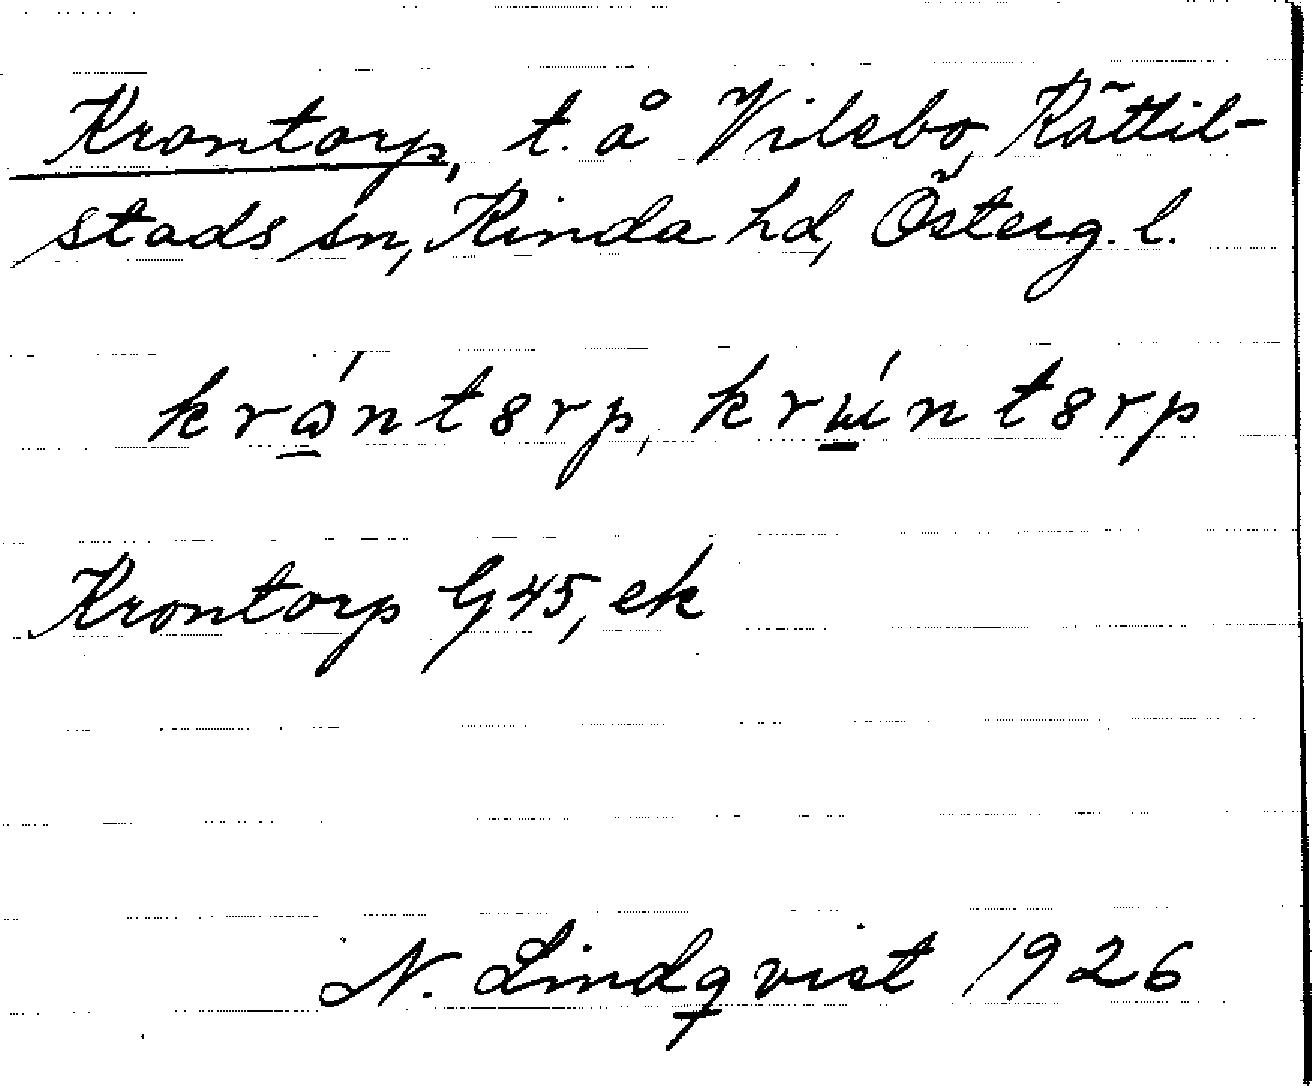 Krontorp, t. å Vilebo, Kättil-
stads sn, Kinda hd, Österg. l.
krɷ́ntȣrp, krɯ́ntȣrp
Krontorp G 45, ek
N. Lindqvist 1926